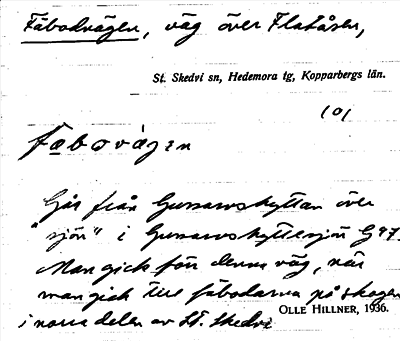 Fäbodvägen, väg över Flatåsen,
St. Skedvi sn, Hedemora tg, Kopparbergs län.
101
fæbovägen
Går från Gussarvshyttan över
"sjön" i Gussarvshyttesjön G47.
Man gick förr denna väg, när
man gick till fäbodarna på skogen
i norra delen av St. Skedvi
OLLE HILLNER, 1936.